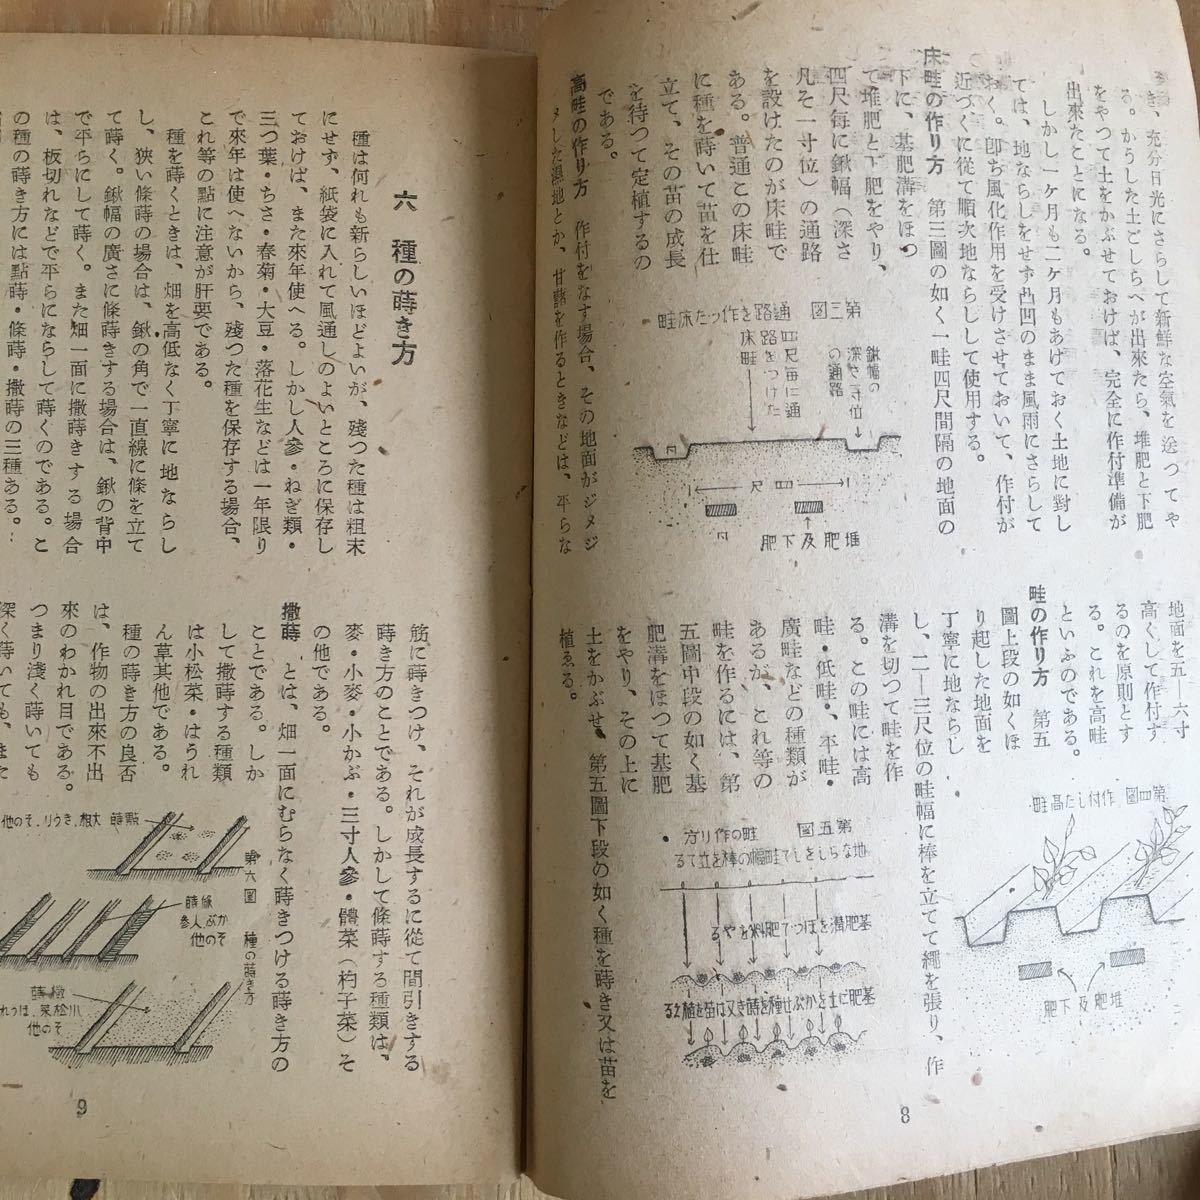 き、充分日光にさらして新鮮な空氣を送つてや
る。かうした土ごしらへが出來たら、堆肥と下肥
をやつて土をかぶせておけば、完全に作付準備が
出來たことになる。
しかし一ヶ月も二ヶ月もあけておく土地に對し
ては、地ならしをせず凸凹のまま風雨にさらして
おく。卽ち風化作用を受けさせておいて、作付が
近づくに從て順次地ならしして使用する。
床畦の作り方　第三圖の如く一畦四尺間隔の地面の
下に、基肥溝をほつ
て堆肥と下肥をやり、
四尺每に鍬幅(深さ
凡そ一寸位)の通路
を設けたのが床畦で
ある。普通この床畦
に種を蒔いて苗を仕
立て、その苗の成長
を待つて定植するの
である。
高畦の作り方　作付をなす場合、その地面がジメジ
メした濕地とか、甘藷を作るときなどは、平らな
第三圖　通路を作つた床畦
鍬幅の
深さ一寸位
の通路
四尺每に通
路をつけた
床畦
四尺
堆肥及下肥
地面を五—六寸
高くして作付す
るのを原則とす
る。これを高畦
といふのである。
畦の作り方　第五
圖上段の如くほ
り起した地面を
丁寧に地ならし
し、二—三尺位の畦幅に棒を立てて繩を張り、作
溝を切つて畦を作
る。この畦には高
畦・低畦・平畦・
廣畦などの種類が
あるが、これ等の
畦を作るには、第
五圖中段の如く基
肥溝をほつて基肥
をやり、その上に
土をかぶせ、第五圖下段の如く種を蒔き又は苗を
植ゑる。
第四圖　作付した高畦
堆肥及下肥
第五圖　畦の作り方
地ならしをして畦幅の棒を立てる
基肥溝をほつて肥料をやる
基肥に土をかぶせ種を蒔き又は苗を植ゑる
8
六　種の蒔き方
種は何れも新らしいほどよいが、殘つた種は粗末
にせず、紙袋に入れて風通しのよいところに保存し
ておけば、また來年使へる。しかし人參・ねぎ類・
三つ葉・ちさ・春菊・大豆・落花生などは一年限り
で來年は使へないから、殘つた種を保存する場合、
これ等の點に注意が肝要である。
種を蒔くときは、畑を高低なく丁寧に地ならし
し、狹い條蒔の場合は、鍬の角で一直線に條を立て
て蒔く。鍬幅の廣さに條蒔きする場合は、鍬の背中
で平らにして蒔く。また畑一面に撒蒔きする場合
は、板切れなどで平らにならして蒔くのである。こ
の種の蒔き方には點蒔・條蒔・撒蒔の三種ある。
筋に蒔きつけ、それが成長するに從て間引きする
蒔き方のことである。しかして條蒔する種類は、
麥・小麥・小かぶ・三寸人參・體菜(杓子菜)そ
の他である。
撒蒔　とは、畑一面にむらなく蒔きつける蒔き方の
ことである。しか
して撒蒔する種類
は小松菜・はうれ
ん草其他である。
種の蒔き方の良否
は、作物の出來不出
來のわかれ目である。
つまり淺く蒔いても
深く蒔いても、また
第六圖　種の蒔き方
點蒔 大根、きうり、その他
條蒔
かぶ、人參
その他
撒蒔
小松菜、ほうれ
その他
9